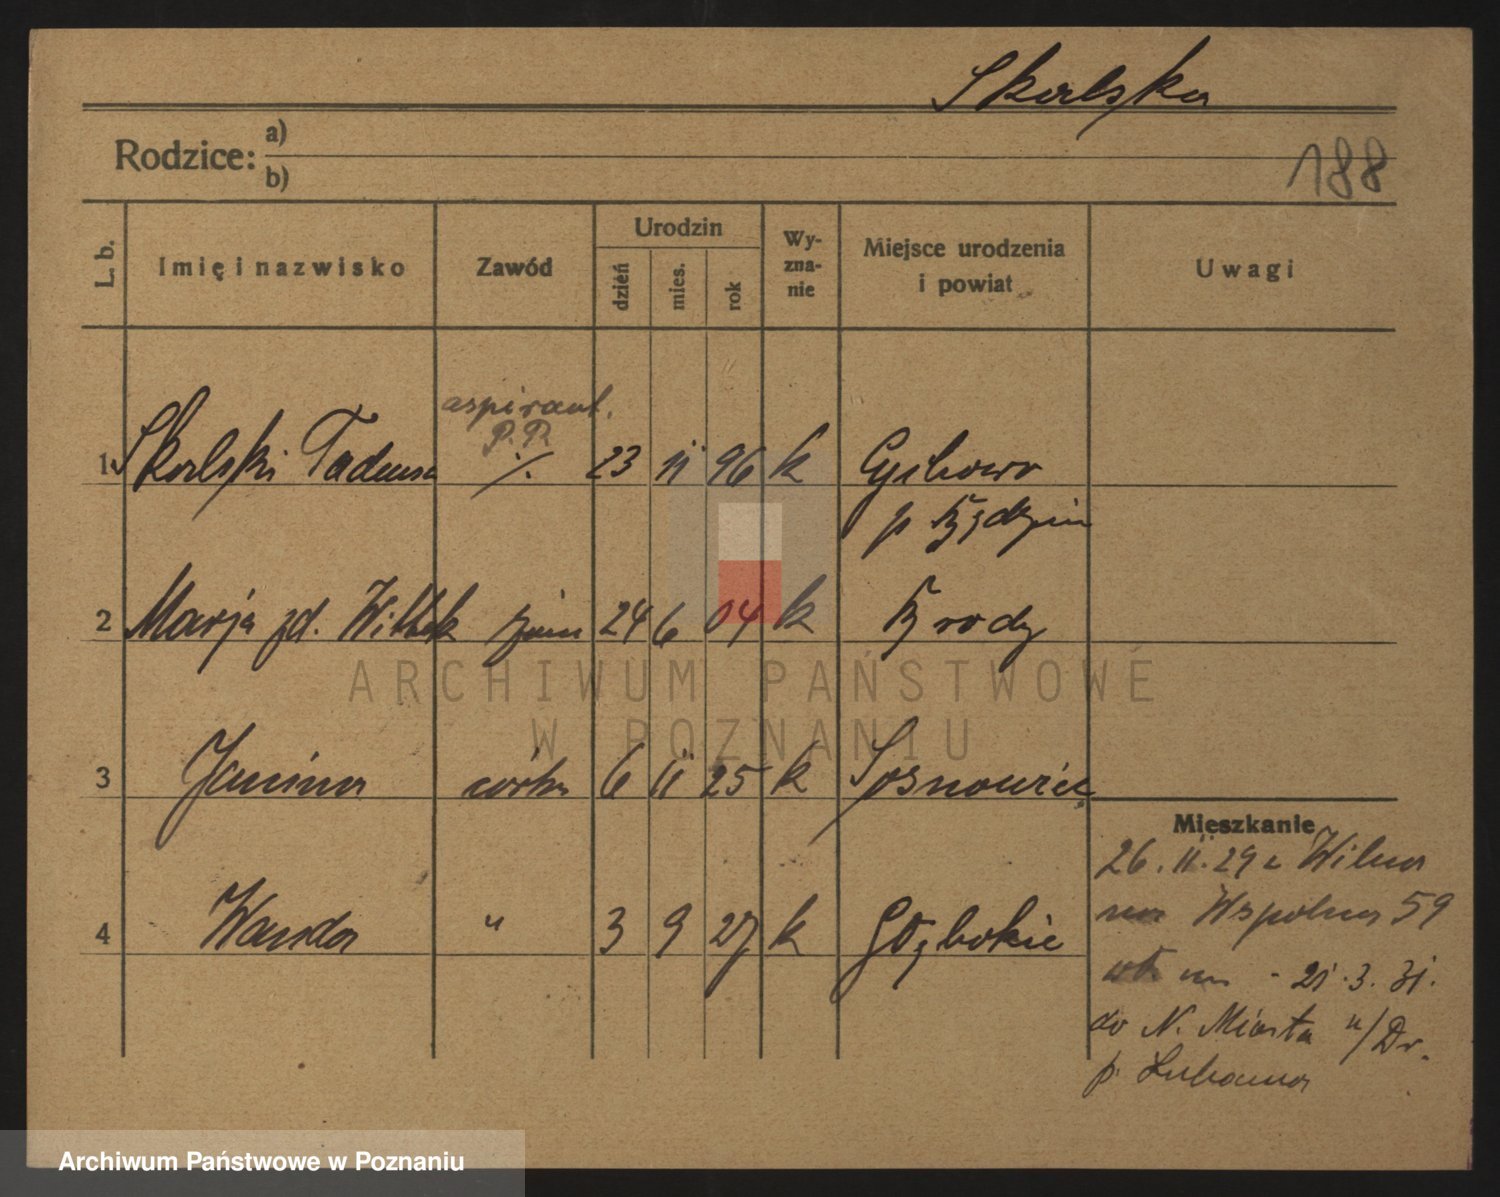 Skalska
Rodzice: a)
b)
188
L. b.
Imię i nazwisko
Zawód
Urodzin
dzień
mies.
rok
Wy-
zna-
nie
Miejsce urodzenia
i powiat
Uwagi
aspirant.
P.P.
1 Skalski Tadeusz ·/. 23 11 96 k
p Będzin
2 Marja zd. Wittek 24 6 04 k Brody
ARCHIWUM PAŃSTWOWE
W POZNANIU
3 Janina córka 6 11 25 k Sosnowiec
Mieszkanie
26. 11. 29 z Wilna
Wspolna 59
4 Wanda " 3 9 27 k Głębokie
21.3.31.
do N. Miasta n/Dr.
p.
Archiwum Państwowe w Poznaniu